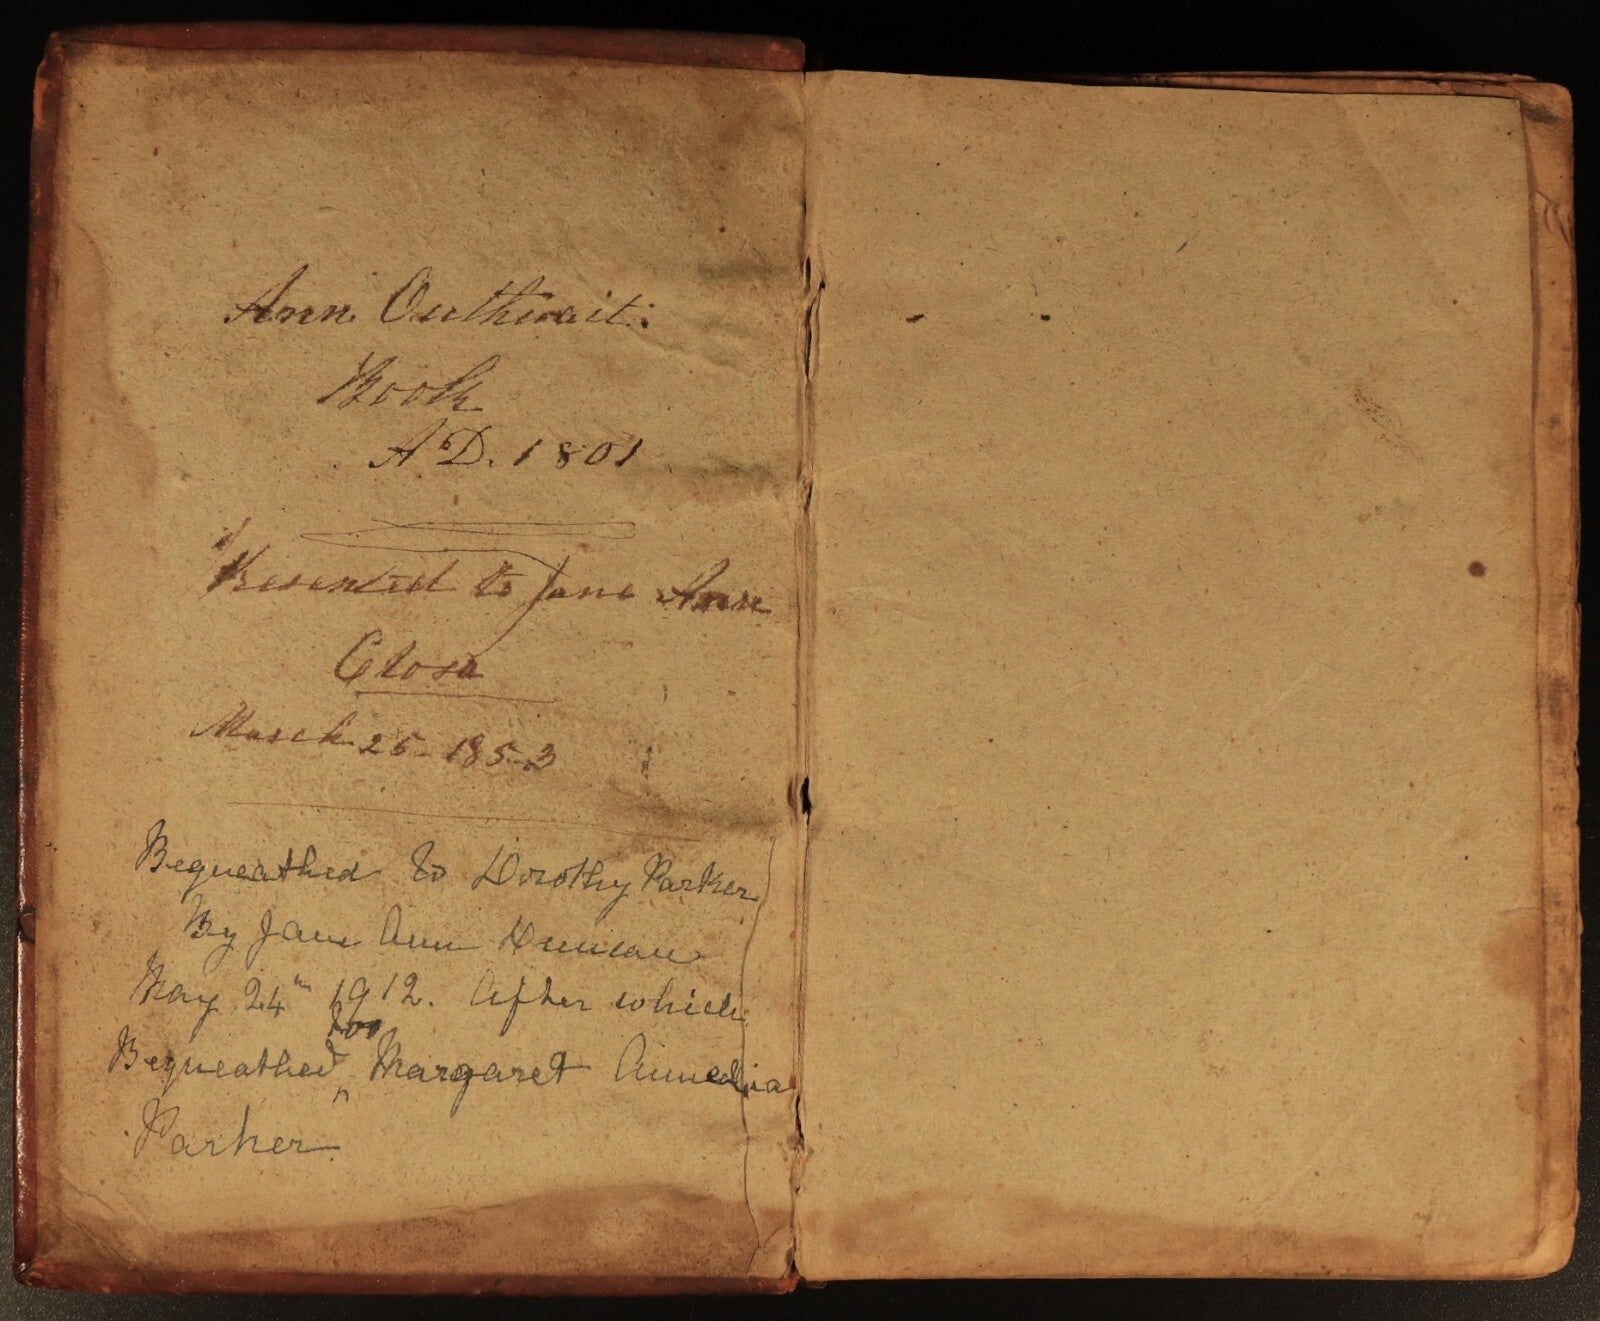 Ann Outhwait:
Book
AD. 1801
Presented to Jane Ann
Close
March 25 1853
Bequeathed to Dorothy Parker
By Jane Ann Duncan
May 24th 1912. After which
Bequeathed to Margaret Annedia
Parker